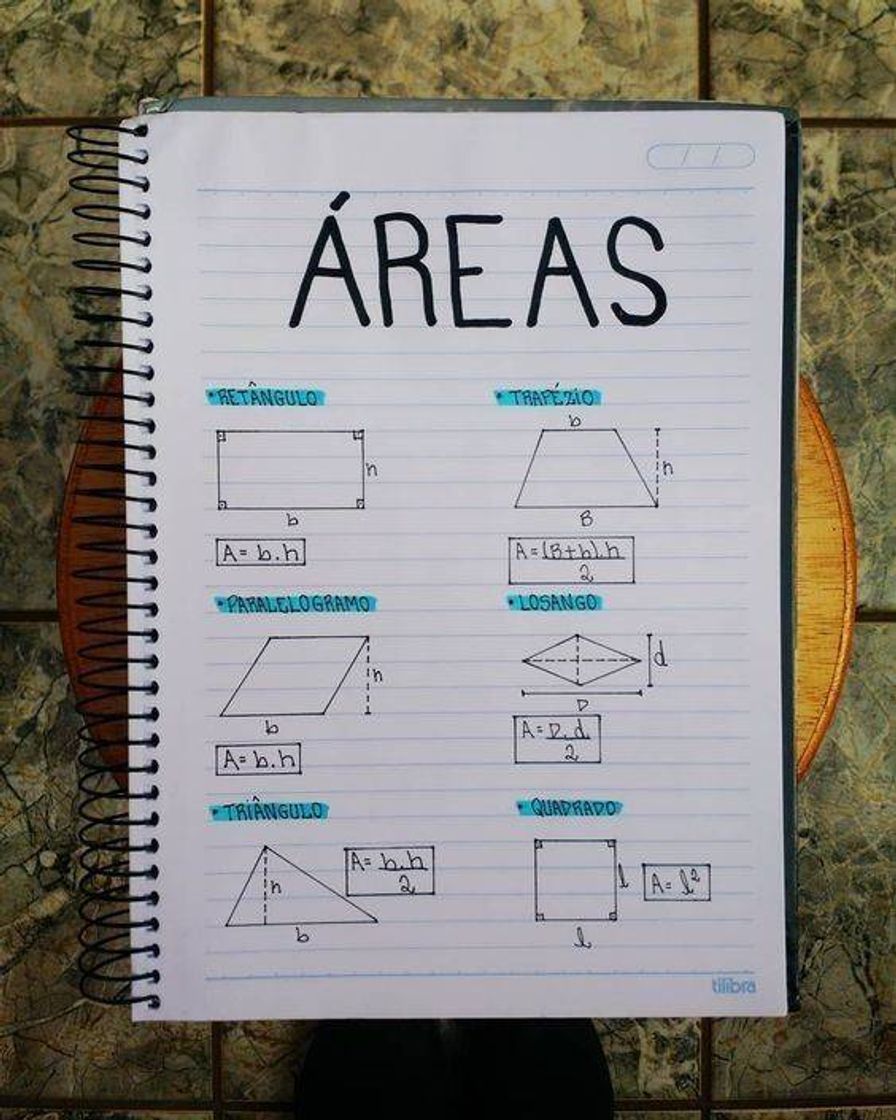 ÁREAS
• RETÂNGULO
h
b
A = b.h
• TRAPÉZIO
b
h
B
A = (B+b).h
2
• PARALELOGRAMO
h
b
A = b.h
• LOSANGO
d
D
A = D.d
2
• TRIÂNGULO
h
b
A = b.h
2
• QUADRADO
l
l
A = l²
tilibra